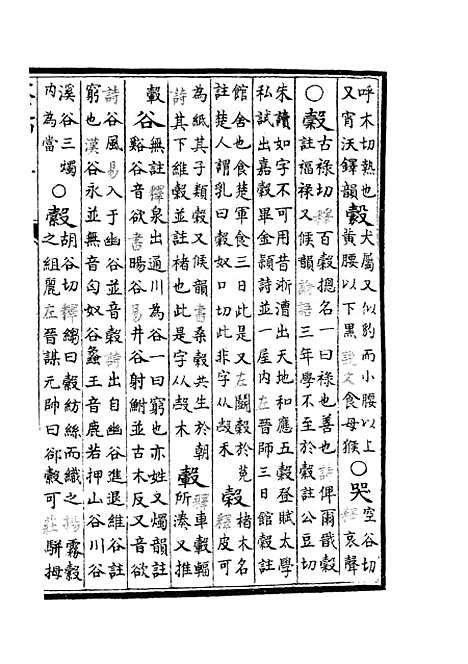 呼木切熱也
又宵沃鐸韻
㺉
犬屬又似豹而小腰以上
黃腰以下黑說文食母猴
○哭
空谷切
釋哀聲
○縠
古祿切釋百穀摠名一曰祿也善也詩俾爾戩穀
註福祿又候韻論語三年學不至於穀註公豆切
朱讀如字不可用昔浙漕出天地和應五穀登賦太學
私試出嘉穀畢金頴詩並一屋內左晉師三日館穀註
館舍也食楚軍食三日此是又左鬭穀於菟
註楚人謂乳曰穀奴口切此非字从㱿禾
榖
楮木名
釋皮可
為紙其子類穀又候韻書桑榖共生於朝
詩其下維榖並註楮也此是字从㱿木
轂
釋車轂輻
所湊又推
轂
谷
無註釋泉出通川為谷一曰窮也亦姓又燭韻註
谿谷音欲書暘谷易井谷射鮒並古木反又音欲
詩谷風易入于幽谷並音穀詩出自幽谷進退維谷註
窮也漢谷永並無音匈奴谷蠡王音鹿若押山谷川谷
溪谷三燭
內為當
○縠
胡谷切釋縐曰縠紡絲而織之揚霧縠
之組麗左晉謀元帥曰郤縠可莊駢拇